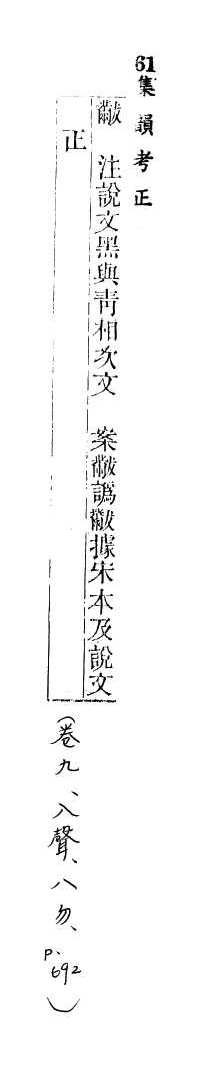 61集韻考正
黻 注說文黑與青相次文 案黻譌據宋本及說文
正
(卷九、入聲、八勿、p.692)